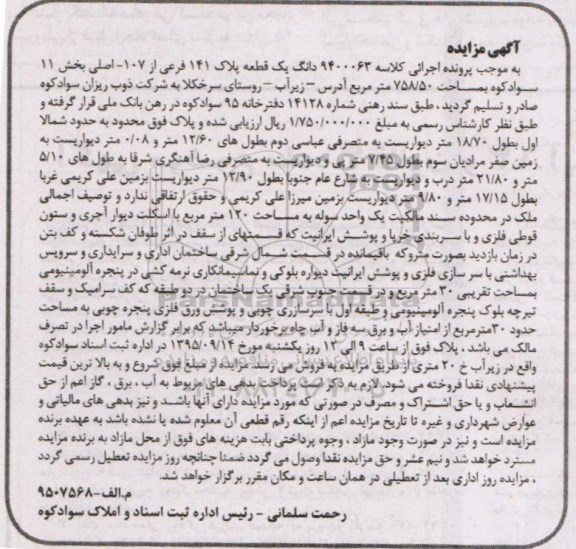 آگهی مزایده
به موجب پرونده اجرائی کلاسه ۹۴۰۰۰۶۳ دانگ یک قطعه پلاک ۱۴۱ فرعی از ۱۰۷- اصلی بخش ۱۱
سوادکوه بمساحت ۷۵۸/۵۰ متر مربع آدرس – زیرآب – روستای سرخکلا به شرکت ذوب ریزان سوادکوه
صادر و تسلیم گردید ، طبق سند رهنی شماره ۱۴۱۲۸ دفترخانه ۹۵ سوادکوه در رهن بانک ملی قرار گرفته و
طبق نظر کارشناس رسمی به مبلغ ۱/۷۵۰/۰۰۰/۰۰۰ ریال ارزیابی شده و پلاک فوق محدود به حدود شمالا
اول بطول ۱۸/۷۰ متر دیواریست به متصرفی عباسی دوم بطول های ۱۲/۶۰ متر و ۰/۰۸ متر دیواریست به
زمین صفر مرادیان سوم بطول ۷/۲۵ متر در و دیواریست به متصرفی رضا آهنگری شرقا به طول های ۵/۱۰
متر و ۲۱/۸۰ متر درب و دیواریست به شارع عام جنوبا بطول ۱۲/۹۰ متر دیواریست بزمین علی کریمی غربا
بطول ۱۷/۱۵ متر و ۹/۸۰ متر دیواریست بزمین میرزا علی کریمی و حقوق ارتفاقی ندارد و توصیف اجمالی
ملک در محدوده سند مالکیت یک واحد سوله به مساحت ۱۲۰ متر مربع با اسکلت دیوار آجری و ستون
قوطی فلزی و با سربندی خرپا و پوشش ایرانیت که قسمتهای از سقف در اثر طوفان شکسته و کف بتن
در زمان بازدید بصورت متروکه باقیمانده در قسمت شمال شرقی ساختمان اداری و سرایداری و سرویس
بهداشتی با سر سازی فلزی و پوشش ایرانیت دیواره بلوکی و نماسیمانکاری نرمه کشی در پنجره آلومینیومی
بمساحت تقریبی ۳۰ متر مربع و در قسمت جنوب شرقی یک ساختمان در دو طبقه که کف سرامیک و سقف
تیرچه بلوک پنجره آلومینیومی و طبقه اول با سرسازری چوبی و پوشش ورق فلزی پنجره چوبی به مساحت
حدود ۳۰ مترمربع از امتیاز آب و برق سه فاز و آب چاه برخوردار میباشد که برابر گزارش مامور اجرا در تصرف
مالک می باشد ، پلاک فوق از ساعت ۹ الی ۱۲ روز یکشنبه مورخ ۱۳۹۵/۰۹/۱۴ در اداره ثبت اسناد سوادکوه
واقع در زیرآب خ ۲۰ متری از طریق مزایده به فروش می رسد. مزایده از مبلغ فوق شروع و به بالا ترین قیمت
پیشنهادی نقدا فروخته می شود. لازم به ذکر است پرداخت بدهی های مربوط به آب ، برق ، گاز اعم از حق
انشعاب و یا حق اشتراک و مصرف در صورتی که مورد مزایده دارای آنها باشد و نیز بدهی های مالیاتی و
عوارض شهرداری و غیره تا تاریخ مزایده اعم از اینکه رقم قطعی آن معلوم شده یا نشده باشد به عهده برنده
مزایده است و نیز در صورت وجود مازاد ، وجوه پرداختی بابت هزینه های فوق از محل مازاد به برنده مزایده
مسترد خواهد شد و نیم عشر و حق مزایده نقدا وصول می گردد ضمنا چنانچه روز مزایده تعطیل رسمی گردد
، مزایده روز اداری بعد از تعطیلی در همان ساعت و مکان مقرر برگزار خواهد شد.
م.الف-۹۵۰۷۵۶۸
رحمت سلمانی - رئیس اداره ثبت اسناد و املاک سوادکوه
ParsNamadData